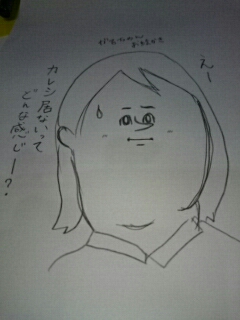 えー
カレシ居ないって
どんな感じー？